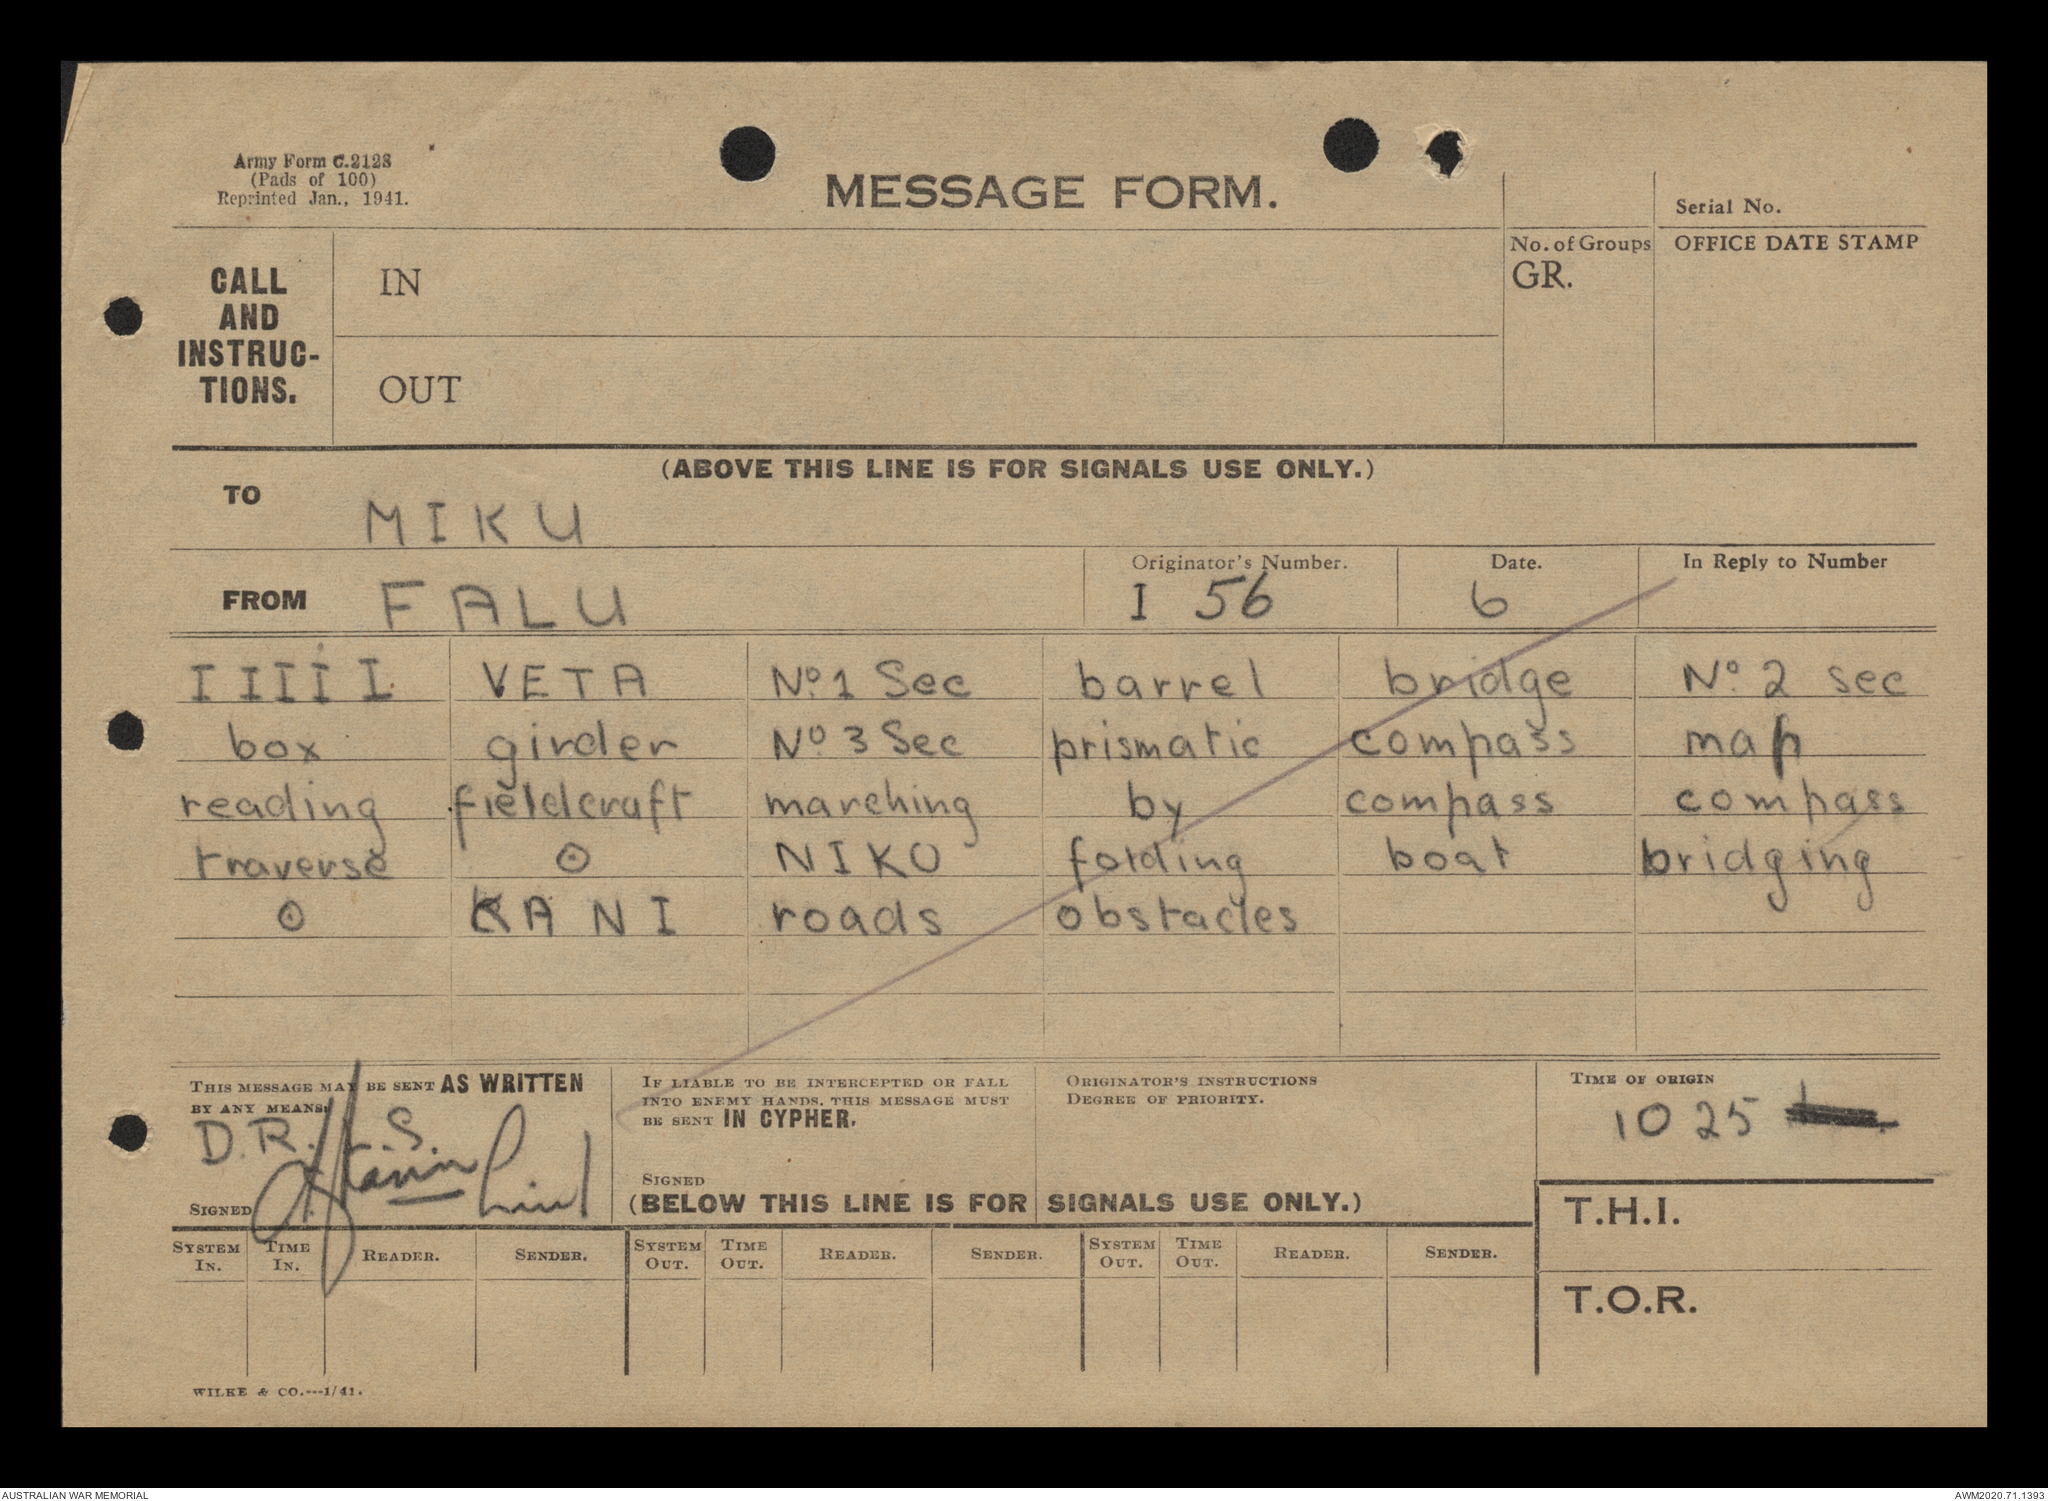 Army Form C.2128
(Pads of 100)
Reprinted Jan., 1941.
MESSAGE FORM.
Serial No.
CALL AND INSTRUC-TIONS.
IN
No. of Groups
GR.
OFFICE DATE STAMP
OUT
(ABOVE THIS LINE IS FOR SIGNALS USE ONLY.)
TO MIKU
FROM FALU
Originator's Number. I 56
Date. 6
In Reply to Number
IIIII VETA No. 1 Sec barrel bridge No. 2 sec
box girder No. 3 Sec prismatic compass map
reading fieldcraft marching by compass compass
traverse ⊙ NIKO folding boat bridging
⊙ KANI roads obstacles
THIS MESSAGE MAY BE SENT AS WRITTEN
BY ANY MEANS.
D.R.L.S.
SIGNED
IF LIABLE TO BE INTERCEPTED OR FALL
INTO ENEMY HANDS, THIS MESSAGE MUST
BE SENT IN CYPHER.
SIGNED
ORIGINATOR'S INSTRUCTIONS
DEGREE OF PRIORITY.
TIME OF ORIGIN
1025
(BELOW THIS LINE IS FOR SIGNALS USE ONLY.)
T.H.I.
SYSTEM IN. TIME IN. READER. SENDER. SYSTEM OUT. TIME OUT. READER. SENDER. SYSTEM OUT. TIME OUT. READER. SENDER.
T.O.R.
WILKE & CO.---1/41.
AUSTRALIAN WAR MEMORIAL
AWM2020.71.1393